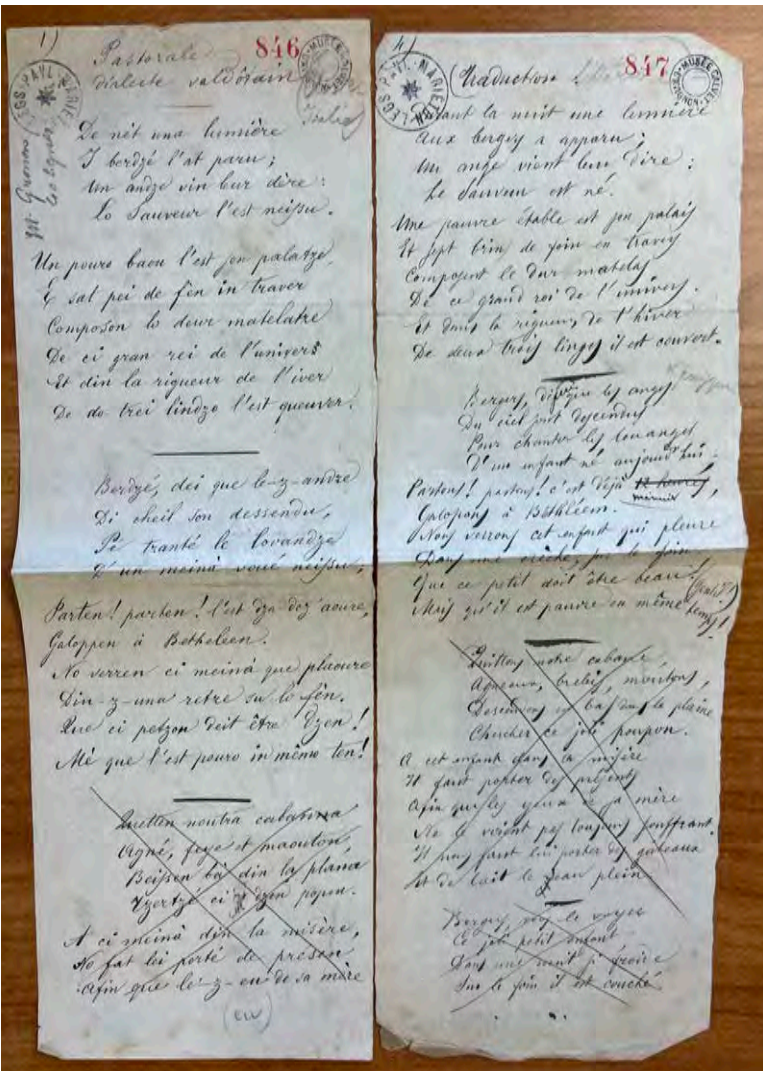 1)
Pastorale
846
dialecte valdôtain
Italie
LEGS PAUL MARIÉTON
De nét una lumière
I berdzé l'at paru;
Un andze vin leur dere:
Lo Sauveur l'est neissu.
Un pouro baou l'est son palatze,
E sat pei de fèn in traver
Composon lo deur matelatre
De ci gran rei de l'univers
Et din la rigueur de l'iver
De do trei lindzo l'est queuver.
Berdzé, dei que le-z-andre
Di cheil son dessendu,
Pe tranté le lovandze
D'un meinà voué neissu;
Parten! parten! l'est dza doz'aoure,
Galoppen à Betheleen.
No verren ci meinà que plaoure
Din-z-una retre su lo fên.
Que ci petzon deit être dzen!
Mè que l'est pouro in mêmo ten!
Quetten noutra cabanna
Agné, feye et maouton,
Beissen bà din la plana
Tzertzé ci dzen popon.
A ci meinà din la misère,
No fat lei porté de presen
Afin que le-z-eu de sa mère
4)
Traduction
847
LEGS PAUL MARIÉTON
MUSÉE CALVET
Durant la nuit une lumière
Aux bergers a apparu;
Un ange vient leur dire:
Le Sauveur est né.
Une pauvre étable est son palais
Et sept brins de foin en travers
Composent le dur matelas
De ce grand roi de l'univers.
Et dans la rigueur de l'hiver
De deux trois linges il est couvert.
Bergers, que les anges
Du ciel sont descendus
Pour chanter les louanges
D'un enfant né aujourd'hui.
Partons! partons! c'est déjà 12 heures,
minuit
Galopons à Bethléem.
Nous verrons cet enfant qui pleure
Dans une crèche, sur le foin.
Que ce petit doit être beau!
Mais qu'il est pauvre en même temps!
Quittons notre cabane,
Agneaux, brebis, moutons,
Descendons en bas dans la plaine
Chercher ce joli poupon.
A cet enfant dans la misère
Il faut porter des présents
Afin que les yeux de sa mère
Ne le voient pas toujours souffrant.
Il nous faut lui porter des gâteaux
Et de lait le seau plein.
Bergers
Ce joli petit enfant
Dans une nuit si froide
Sur le foin il est couché